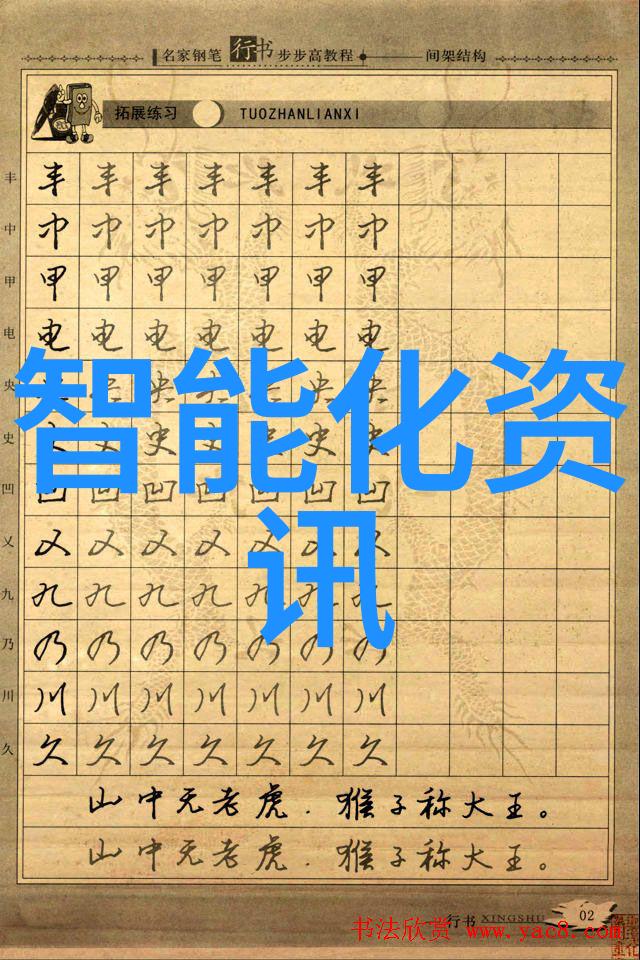 名家钢笔行书步步高教程 间架结构
拓展练习 TUOZHANLIANXI
丰 丰 丰 丰 丰 丰 丰 丰
中 中 中 中 中 中 中 中
甲 甲 甲 甲 甲 甲 甲 甲
电 电 电 电 电 电 电 电
央 央 央 央 央
智能化资
史 史 史 史
凹 凹 凹 凹 凹 凹 凹 凹
乂 乂 乂 乂 乂 乂 乂 乂
讯
九 九 九 九 九 九 九 九
乃 乃 乃 乃 乃 乃 乃 乃
川 川 川 川 川 川 川 川
久 久 久 久 久 久 久 久
山中无老虎．猴子称大王。
山中无老虎．猴子称大王。
行书 XINGSHU 02
书法欣赏 www.yac8.com